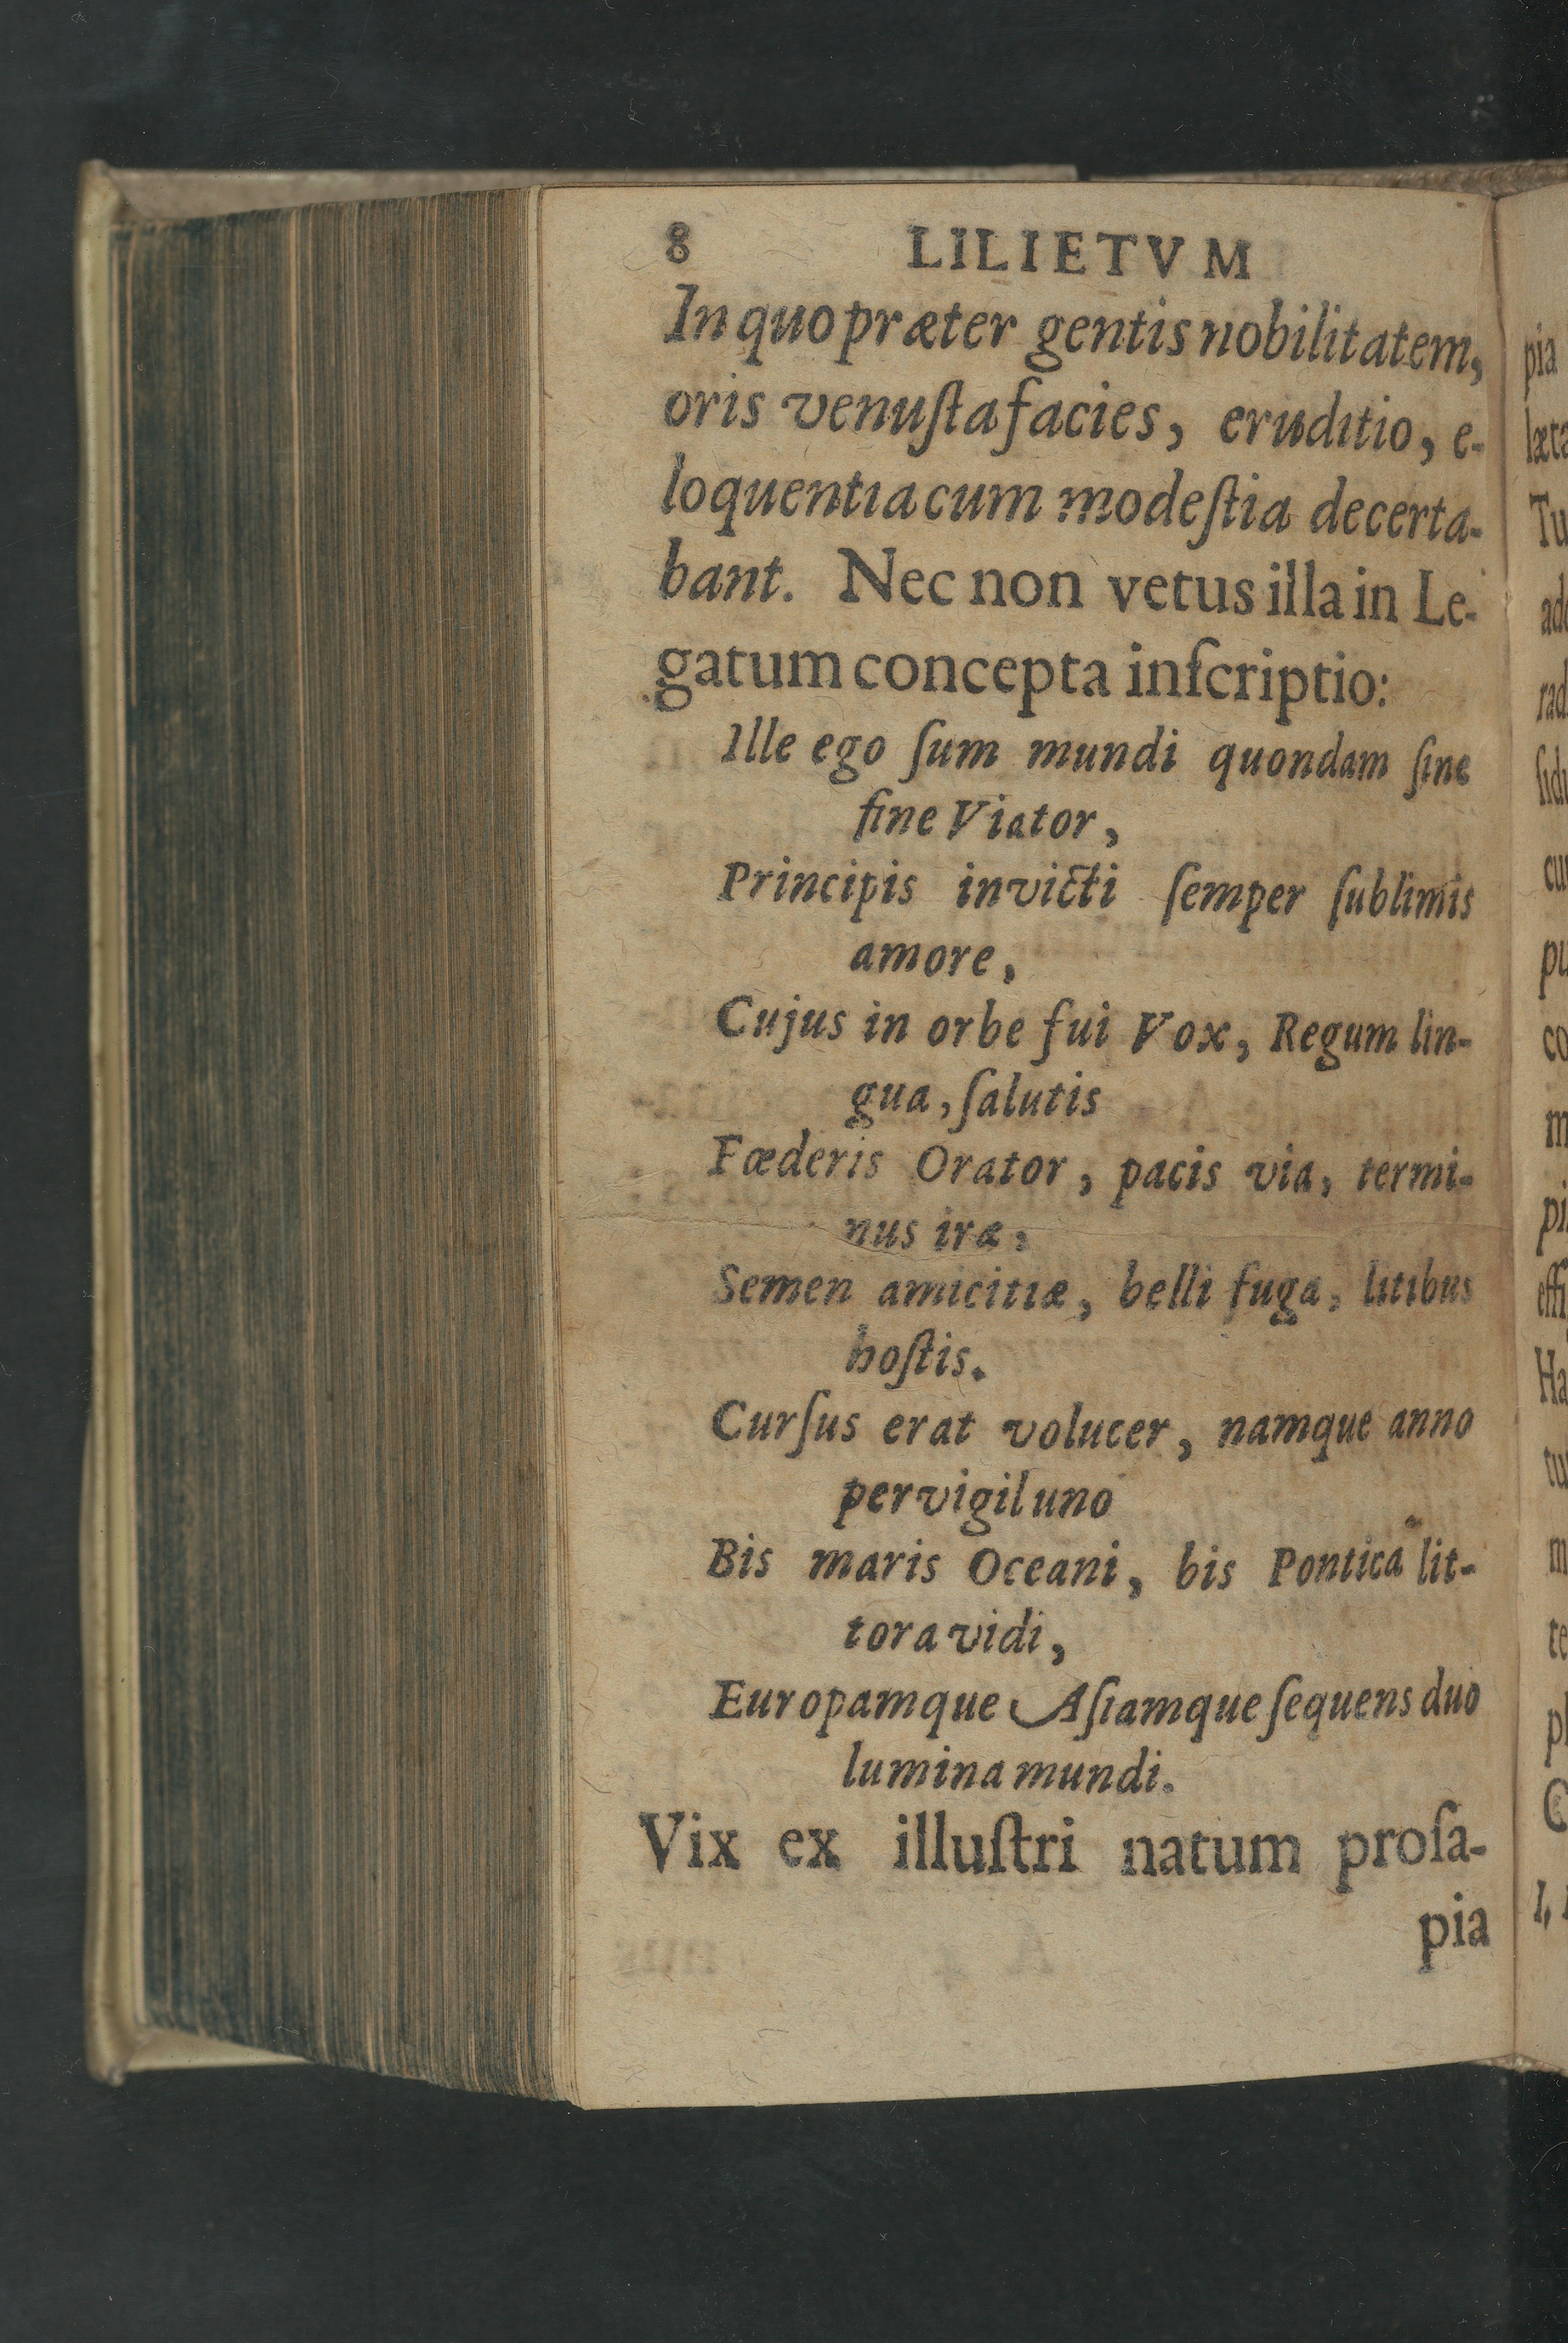 8 LILIETVM
In quo præter gentis nobilitatem,
oris venuſta facies, eruditio, e-
loquentia cum modeſtia decerta-
bant. Nec non vetus illa in Le-
gatum concepta inſcriptio:
Ille ego ſum mundi quondam ſine
fine Viator,
Principis invicti ſemper ſublimis
amore,
Cujus in orbe fui Vox, Regum lin-
gua, ſalutis
Fœderis Orator, pacis via, termi-
nus iræ,
Semen amicitiæ, belli fuga, litibus
hoſtis.
Curſus erat volucer, namque anno
pervigil uno
Bis maris Oceani, bis Pontica lit-
tora vidi,
Europamque Aſiamque ſequens duo
lumina mundi.
Vix ex illuſtri natum proſa-
pia
pia
læta
Tu
ado
rad
ſidu
cu
pu
co
m
pi
effi
Ha
tu
m
te
pl
C
I,